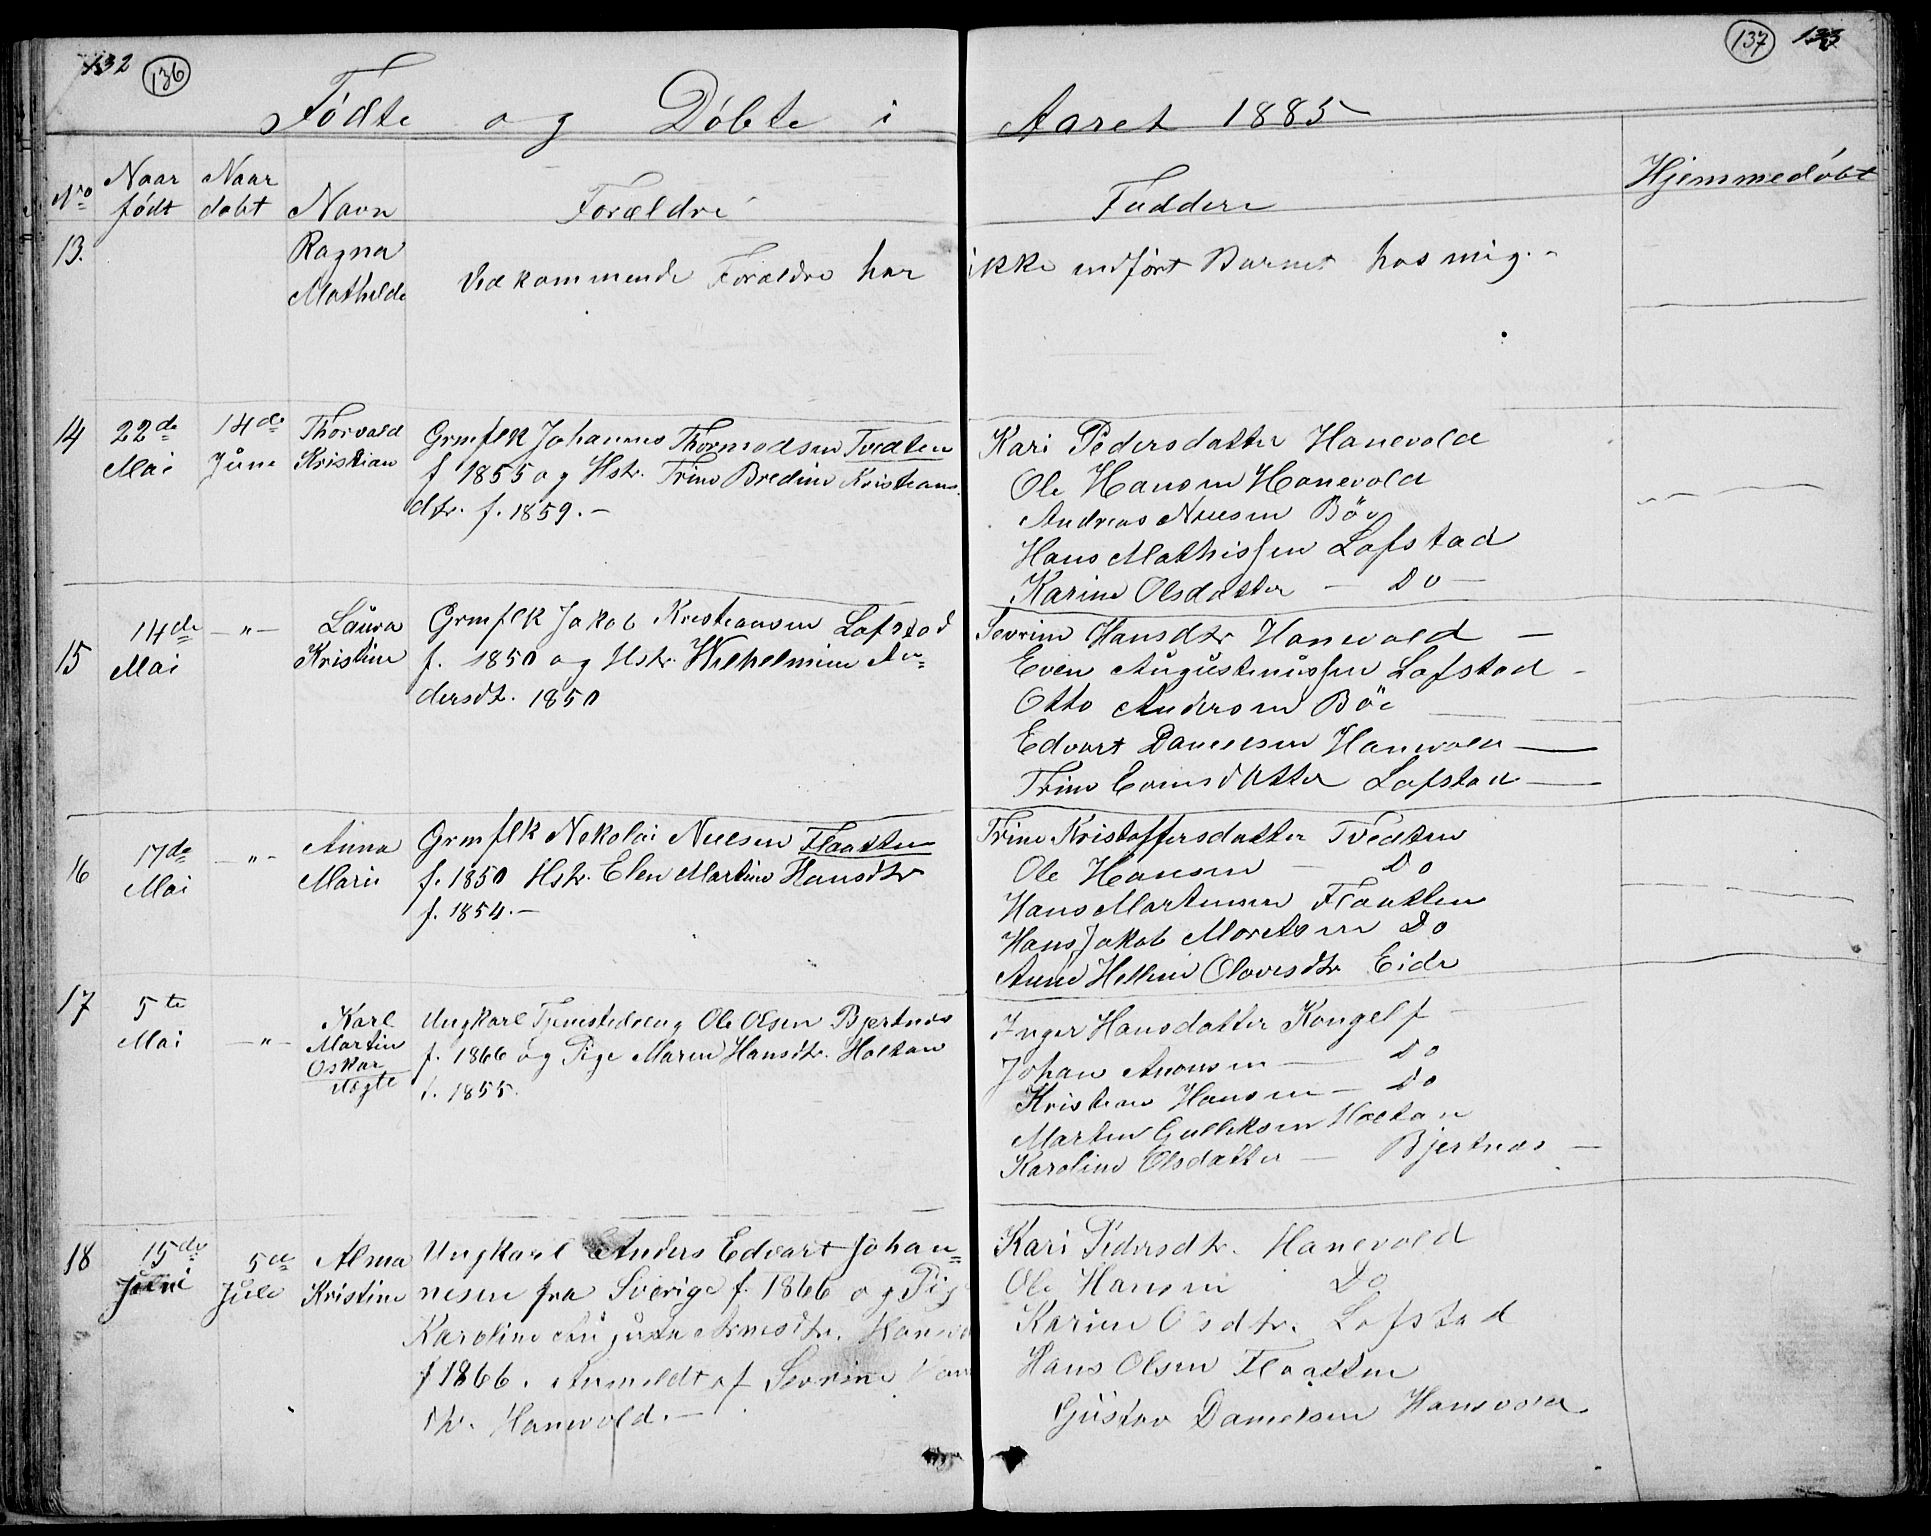 132 136
137 133
Fødte og Døbte i Aaret 1885
No
Naar født
Naar døbt
Navn
Forældre
Faddere
Hjemmedøbt
13.
Ragna
Mathilde
Vedkommende Forældre har ikke indført Barnet hos mig.
14
22de
Mai
14de
June
Thorvald
Kristian
Grmflk Johannes Thormodsen Tvedten
f 1855 og Hstr. Trine Bredine Kristians
dtr. f. 1859. —
Kari Pedersdatter Hanevold
Ole Hansen Hanevold
Andreas Nielsen Böe
Hans Mathissen Lofstad
Karine Olsdatter — Do —
15
14de
Mai
— " —
Laura
Kristine
Grmflk Jakob Kristiansen Lofstad
f. 1850 og Hstr. Wilhelmine An=
dersdt. 1850
Sevrine Hansdtr Hanevold —
Even Augustinussen Lofstad -
Otto Andersen Böe
Edvart Danielsen Hanevold —
Trine Evensdatter Lofstad —
16
17de
Mai
— " —
Anna
Marie
Grmflk Nekolai Nielsen Flaatten
f. 1850 Hstr. Elen Martine Hansdtr
f. 1854. —
Trine Kristoffersdatter Tvedten
Ole Hansen — Do
Hans Martinsen Flaatten
Hans Jakob Moretsen Do
Anne Helline Olavesdtr Eide
17
5te
Mai
— " —
Karl
Martin
Oskar
uægte
Ungkarl Tjenestedreng Ole Olsen Bjertnæs
f. 1866 og Pige Maren Hansdtr. Holtan
f. 1855.
Inger Hansdatter Kongelf —
Johan Aronsen — Do
Kristian Hansen — Do
Martin Gulliksen Holtan
Karoline Olsdatter — Bjertnæs —
18
15de
Juni
5te
Juli
Alma
Kristine
Ungkarl Anders Edvart Johan=
nesen fra Sverige f. 1866 og Pig
Karoline Augusta Arnesdtr.
f 1866. Anmeldt af Sevrine
dtr. Hanevold. —
Kari Pedersdtr. Hanevold
Ole Hansen Do
Karine Olsdtr. Lofstad
Hans Olsen Flaatten
Gustav Danielsen Hanevold